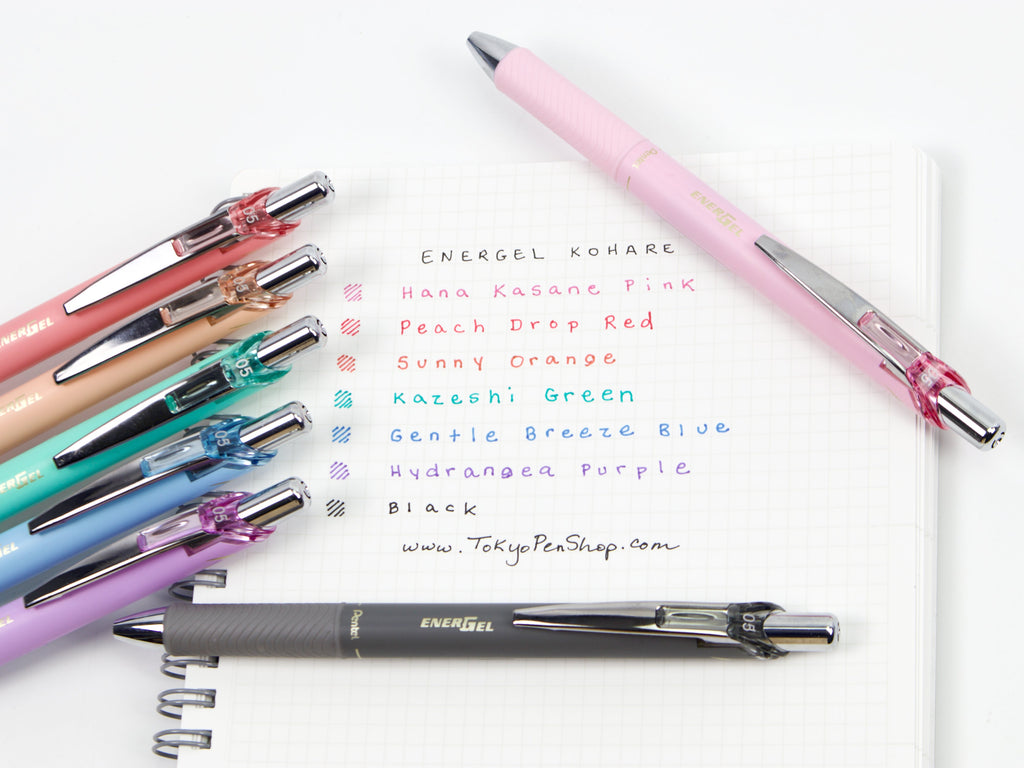 ENERGEL KOHARE
Hana Kasane Pink
Peach Drop Red
Sunny Orange
Kazeshi Green
Gentle Breeze Blue
Hydrangea Purple
Black
www.TokyoPenShop.com
Pentel
ENERGEL
05
ENERGEL
05
ERGEL
05
ERGEL
05
GEL
05
05
Pentel
ENERGEL
05